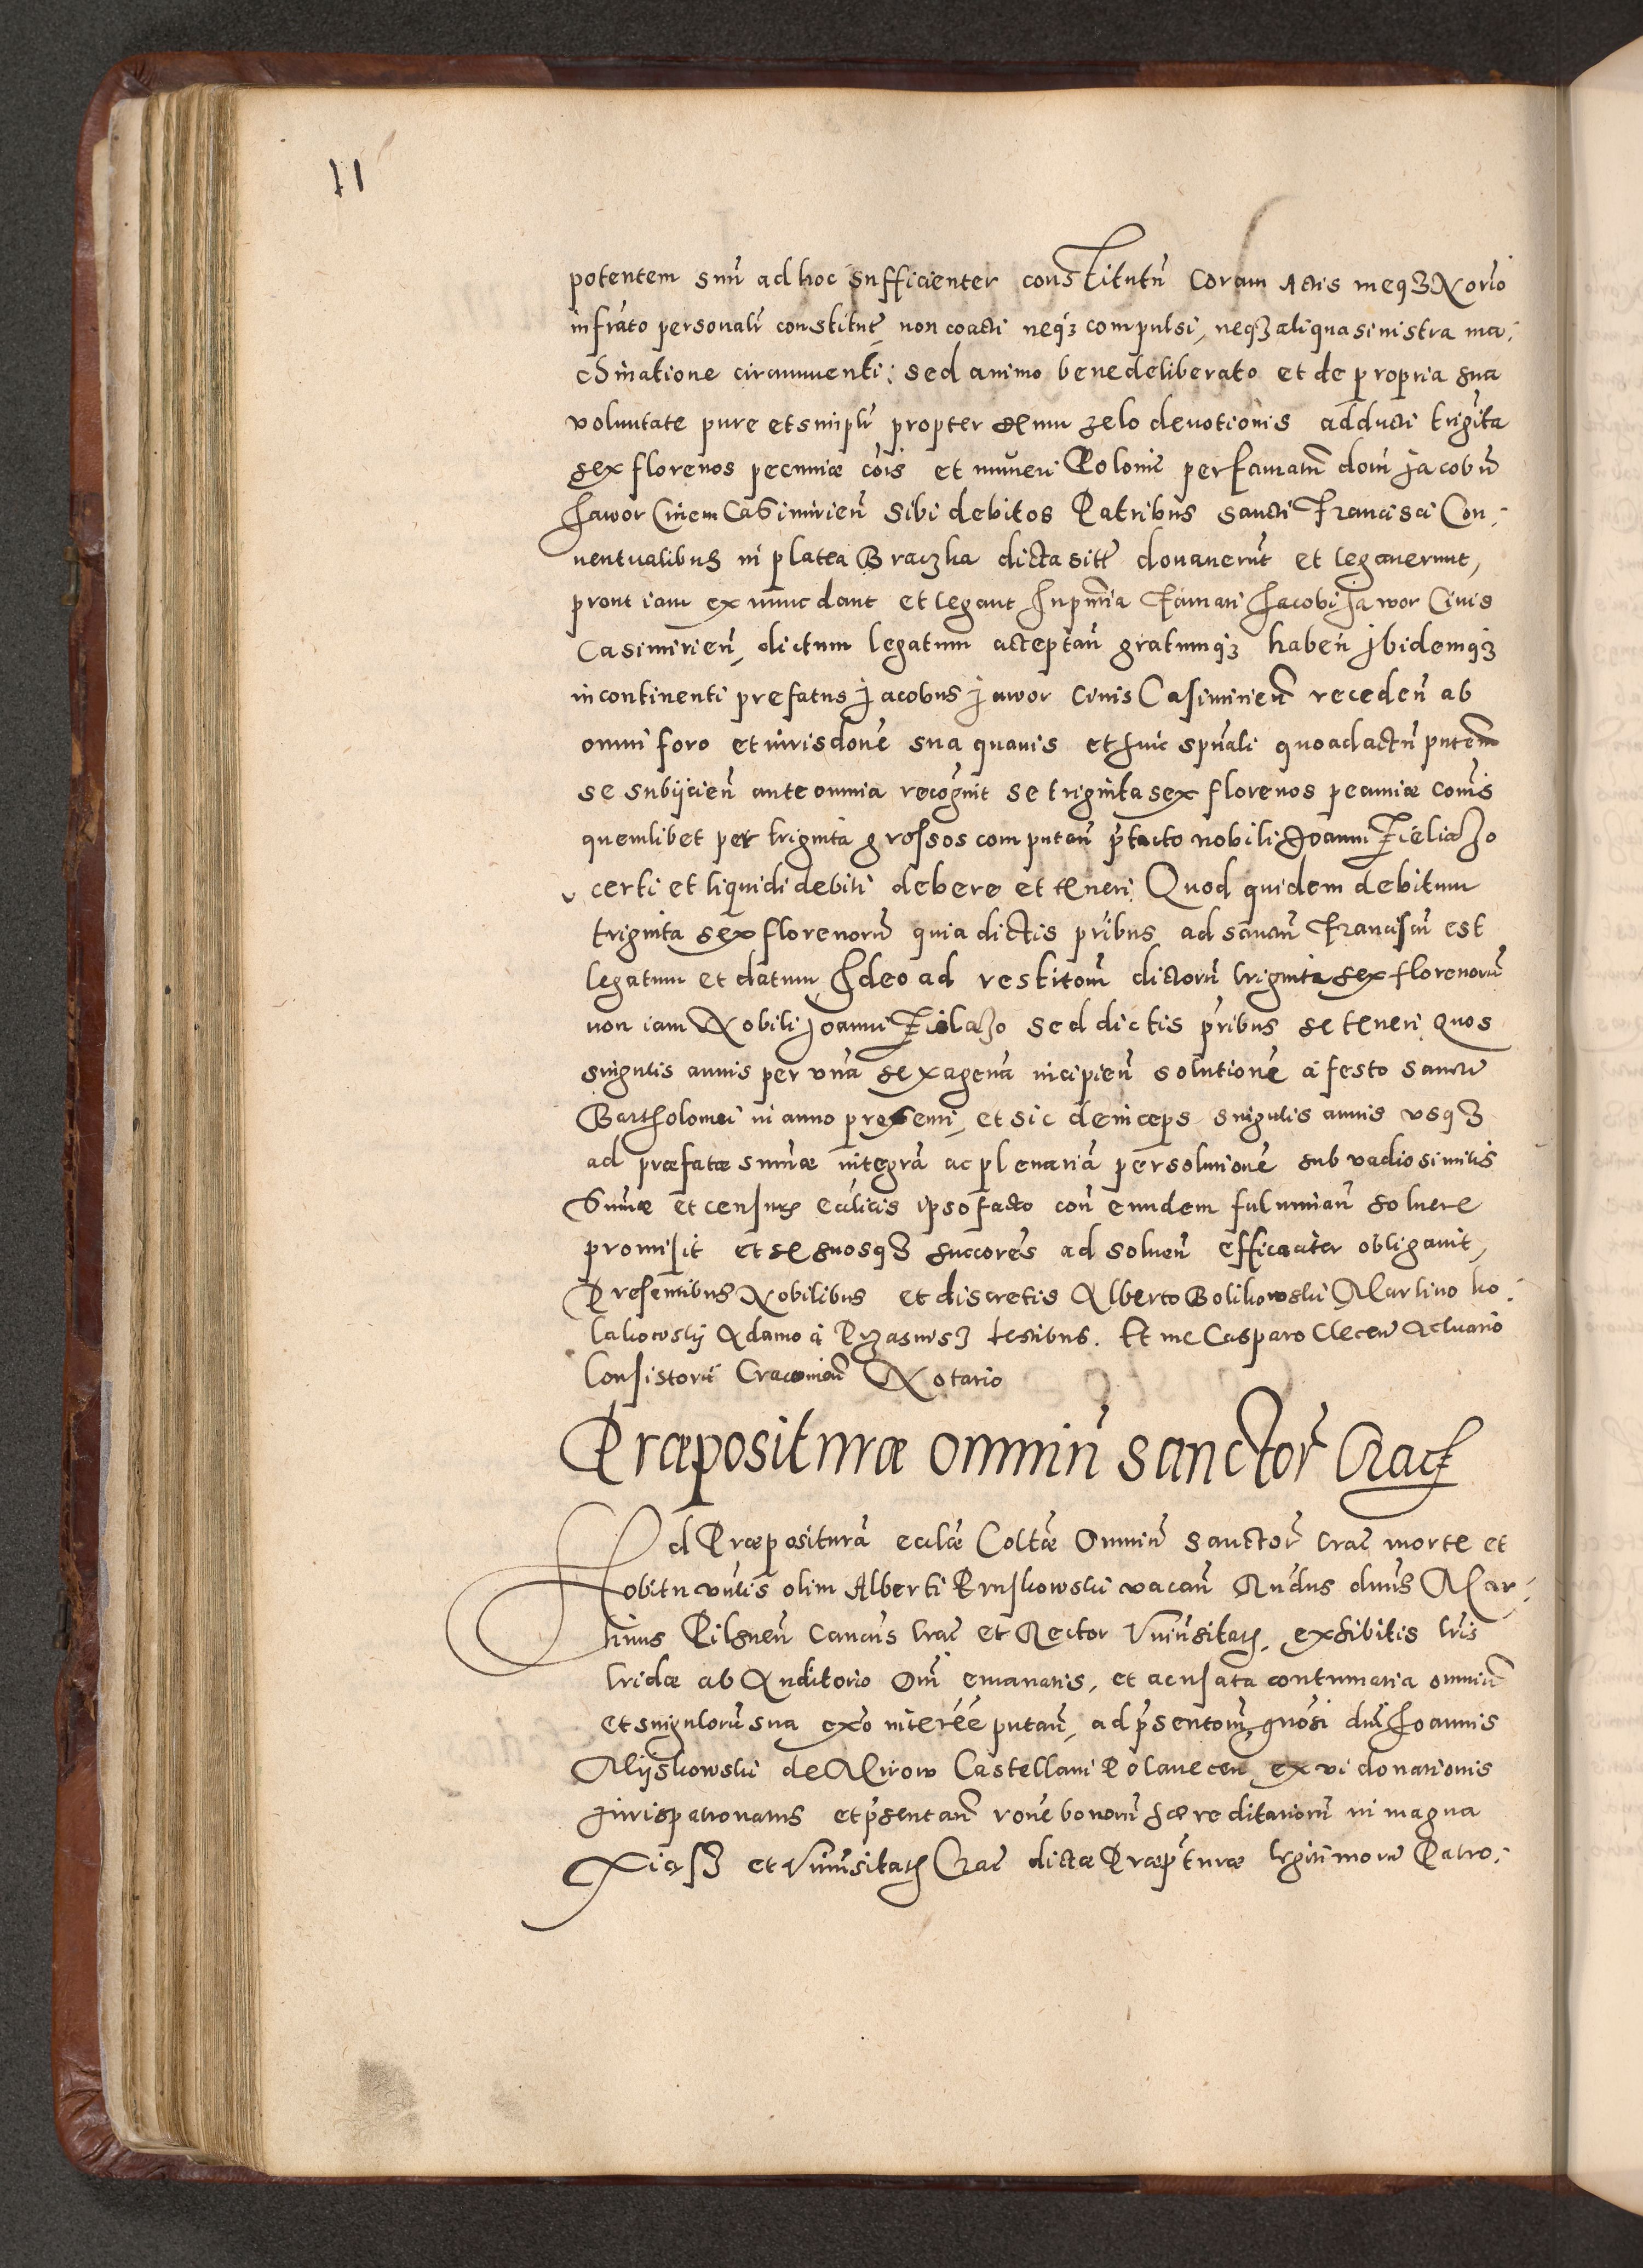 11
potentem suũ ad hoc sufficienter constitutũ coram Actis meq3 Norio
infrato personalr constitute, non coacti neq3 compulsi, neq3 aliqua sinistra ma:
chinatione circumuenti: sed animo bene deliberato et de propria sua
voluntate pure et simplr propter zelo deuotionis adducti trigita
sex florenos pecuniæ cõis et numeri Poloniẽ per famatũ dom̃ Jacobũ
Jawor Ciuem Casimirieñ Sibi debitos Patribus sancti Francisci Con:
uentualibus in platea Braczka dicta sitẽ donauerũt et legauerunt,
prout iam ex nunc dant et legant Inpñtia Famati Jacobi Jawor Ciuis
Casimirieñ, dictum legatum acceptañ gratumq3 habeñ Jbidemq3
incontinenti prefatus Jacobus Jawor Ciuis Casimirieñ recedeñ ab
omni foro et iurisdoñe sua quauis et huic spũali quoad actũ pñtem
se subijcieñ ante omnia recogñit se triginta sex florenos pecuniæ coũis
quemlibet per triginta grossos computañ p̃tacto nobili Joanni
certi et liquidi debiti debere et teneri. Quod quidem debitum
triginta sex florenorũ quia dictis p̃ribus ad sanctũ Franciscũ est
legatum et datum, Ideo ad restitoñ dictorũ triginta sex florenorũ
non iam Nobili Joanni sed dictis p̃ribus se teneri quos
singulis annis per vnã sexagenã incipieñ solutionẽ á festo sancti
Bartholomei in anno presenti, et sic deinceps singulis annis vsq3
ad præfatæ sum̃æ integrã ac plenariã persolutionẽ sub vadio similis
Sum̃æ et censuris ecclicis ipso facto con̄ eundem fulminañ soluere
promisit et se suosq3 succores ad solueñ efficaciter obligauit,
Presentibus Nobilibus et discretis Alberto Bolikowski Martino ko:
lakowskij Adamo á testibus. Et me Casparo Clecen Actuario
Consistorii Cracouieñ Notario
Præpositurae omniũ sanctor̃ Crac
Ad Præposituram ecclæ Coltæ Omniũ Sanctor̃ Crac morte et
obitu vñlis olim Alberti Kruskowski vacañ Rñdus dnũs Mar:
tinus Pilsneñ Cancus Crac et Rector Vniũsitatis exhibitis lris
cridæ ab Auditorio Om̃ emanatis, et acusata contumatia omniũ
et singulorũ sua exõ interẽẽ putañ, ad p̃sentoñ gnõsi dni Joannis
Mijskowski de Mirow Castellani Polanecen ex vi donationis
Jurispatronatus et p̃sentañ rõne bonorũ hæreditariorũ in magna
et Vniũsitatis Crac dictæ Præp̃turæ legitimorũ Patro: